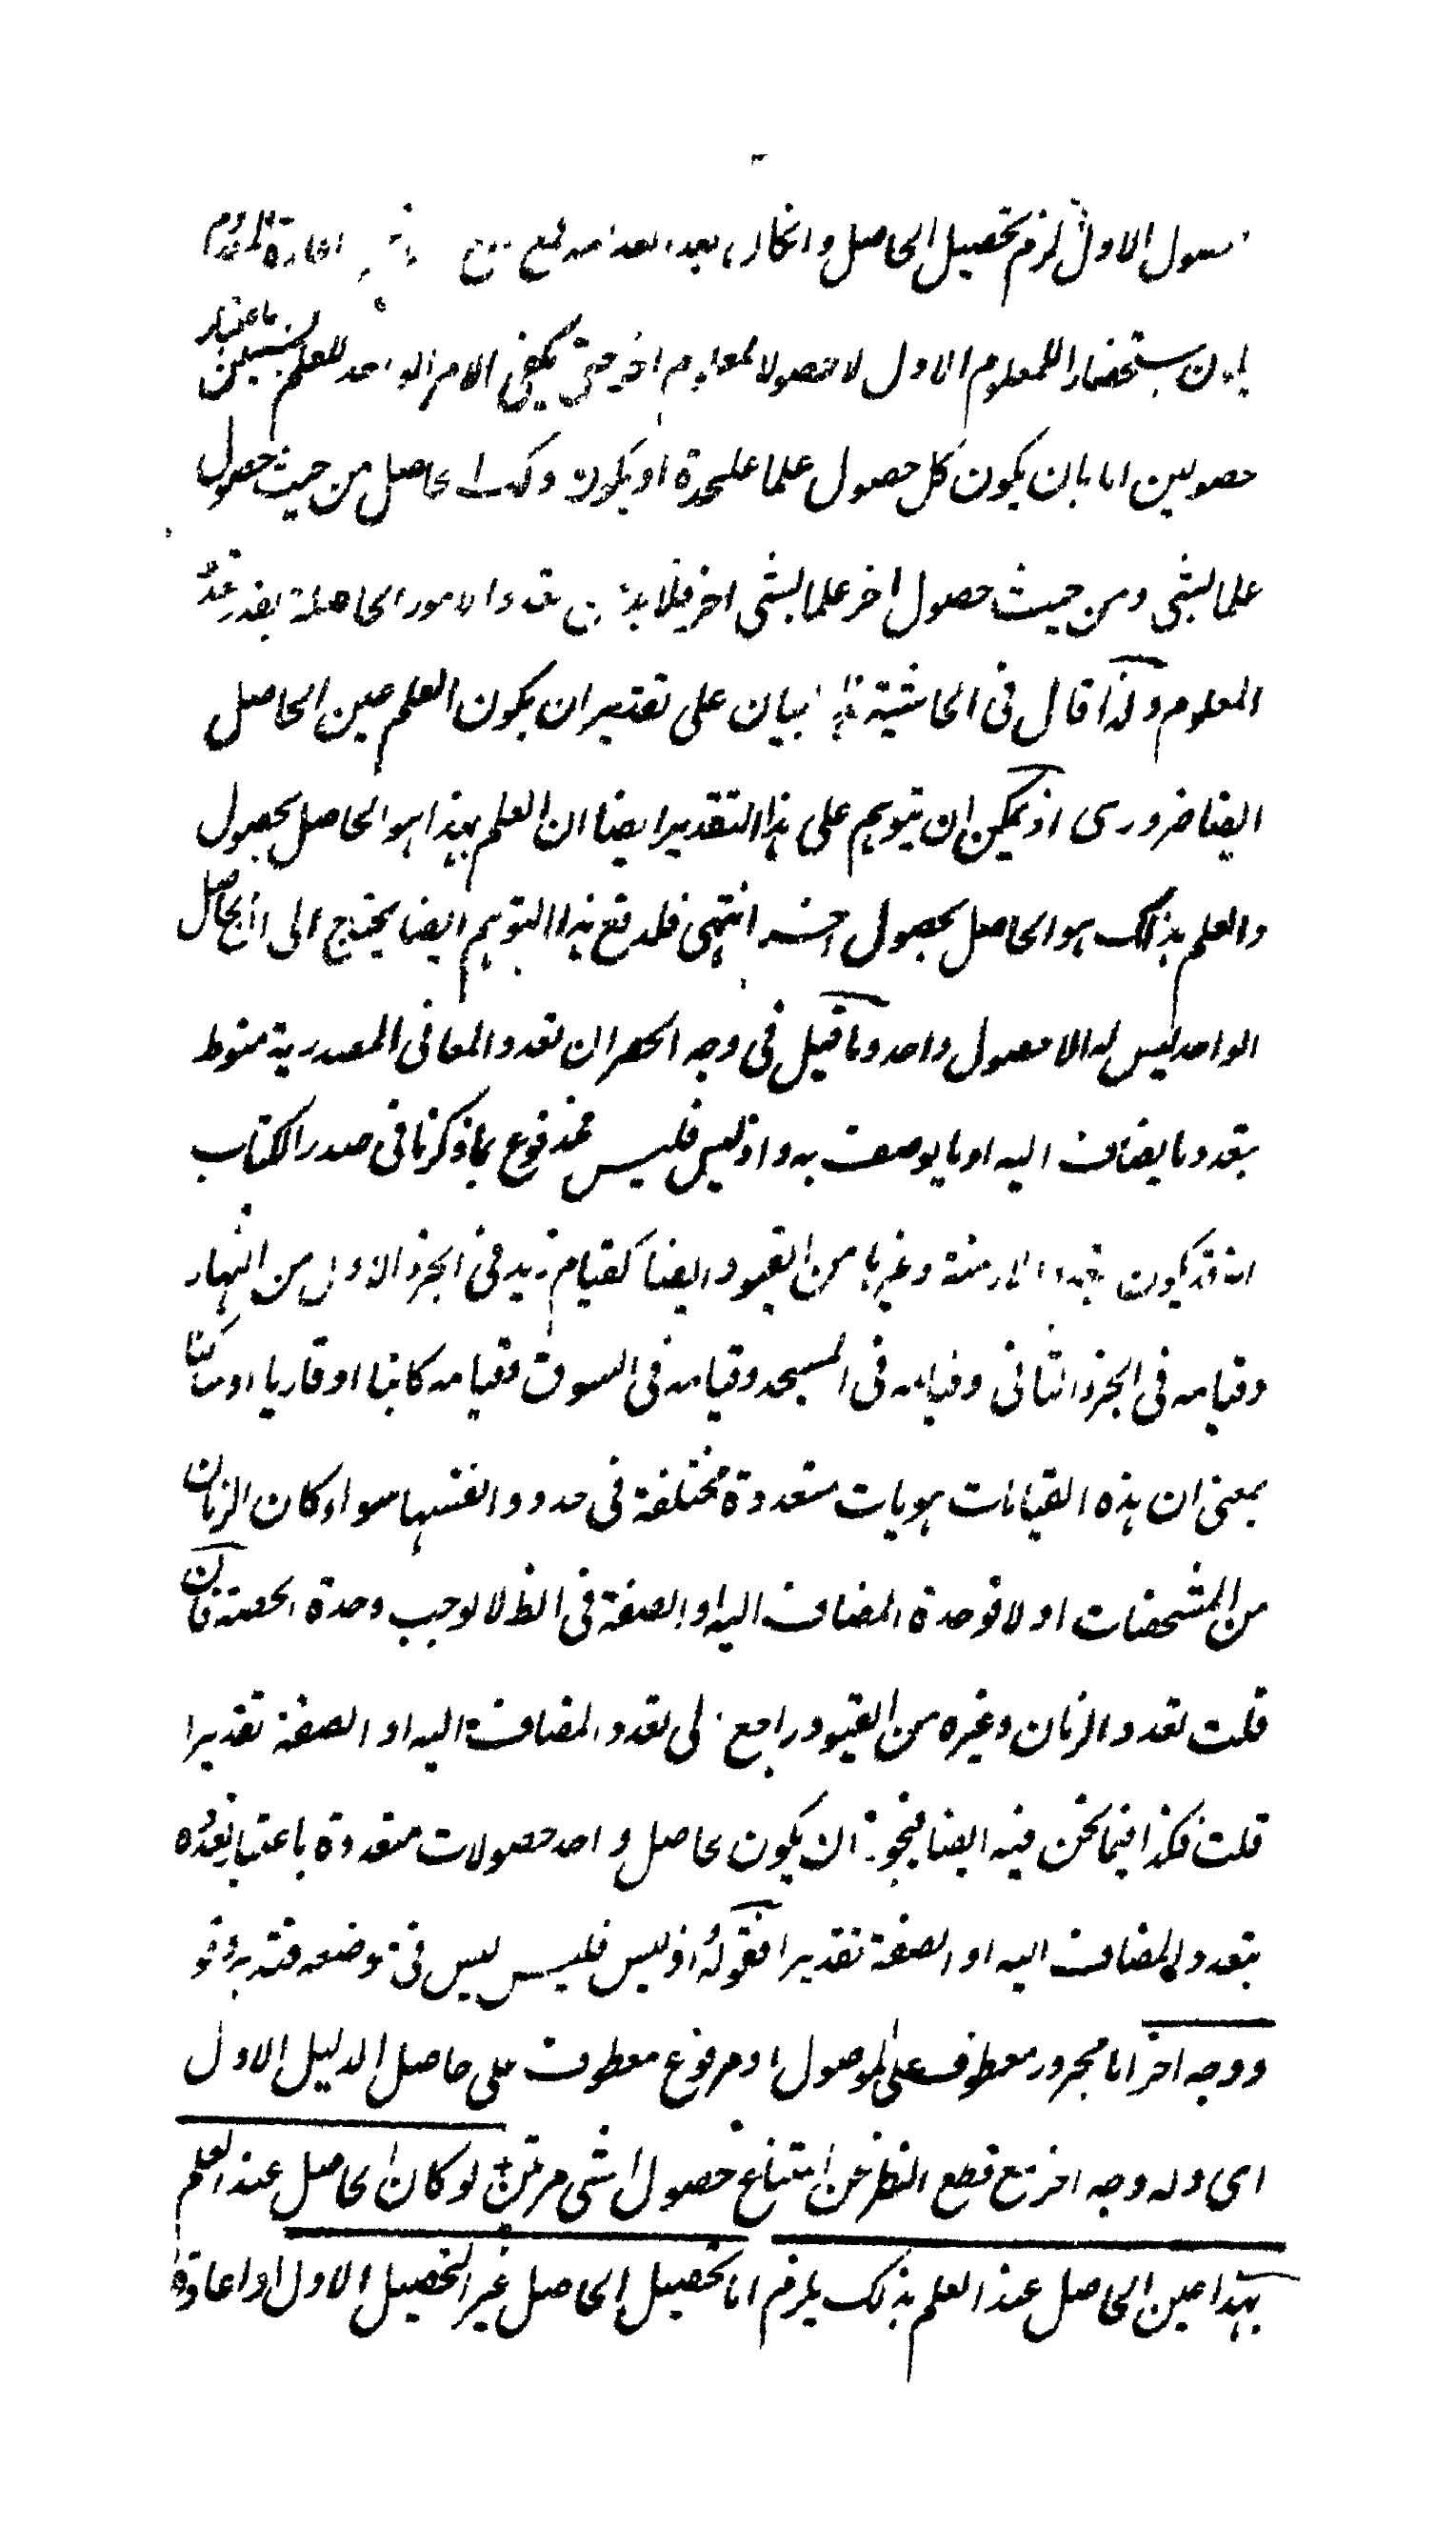 حصول الاول لزم تحصيل الحاصل وان كان بعد اعادة المعدوم
يكون استحضارا للمعلوم الاول لا حصولا لمعلوم اخر حتى يكفي الامر الواحد للعلمين باعتبار
حصولين اما بان يكون كل حصول علما عليحدة او يكون حاصل من حيث حصول
علما لشي ومن حيث حصول اخر علما لشي اخر فلا بد من تعدد الامور الحاصلة بقدر تعدد
المعلوم ولذا قال في الحاشية بيان على تقدير ان يكون العلم عين الحاصل
ايضا ضروري اذ يمكن ان يتوهم على هذا التقدير ايضا ان العلم بهذا هو الحاصل بحصول
والعلم بذلك هو الحاصل بحصول اخر انتهى فلدفع هذا التوهم ايضا يحتاج الى ان الحاصل
الواحد ليس له الا حصول واحد وما قيل في وجه الحصر ان تعدد المعاني المصدرية منوط
بتعدد ما يضاف اليه او ما يوصف به واذ ليس فليس فمدفوع بما ذكرنا في صدر الكتاب
انه قد يكون بتعدد الازمنة وغيرها من القيود ايضا كقيام زيد في الجزء الاول من النهار
وقيامه في الجزء الثاني وقيامه في المسجد وقيامه في السوق وقيامه كاتبا او قاريا او ساكتا
بمعنى ان هذه القيامات هويات متعددة مختلفة في حدود انفسها سواء كان الزمان
من المشخصات او لا فوحدة المضاف اليه او الصفة في الظ لا يوجب وحدة الحصة فان
قلت تعدد الزمان وغيره من القيود راجع الى تعدد المضاف اليه او الصفة تقديرا
قلت فكذا فيما نحن فيه ايضا فيجوز ان يكون لحاصل واحد حصولات متعددة باعتبار تعدده
بتعدد المضاف اليه او الصفة تقديرا فقوله اذ ليس فليس ليس في موضعه فتدبر قوله
ووجه اخر اما مجرور معطوف على الموصول او مرفوع معطوف على حاصل الدليل الاول
اي وله وجه اخر مع قطع النظر عن امتناع حصول الشي مرتين لو كان الحاصل عند العلم
بهذا عين الحاصل عند العلم بذلك يلزم اما تحصيل الحاصل غير التحصيل الاول او اعادة